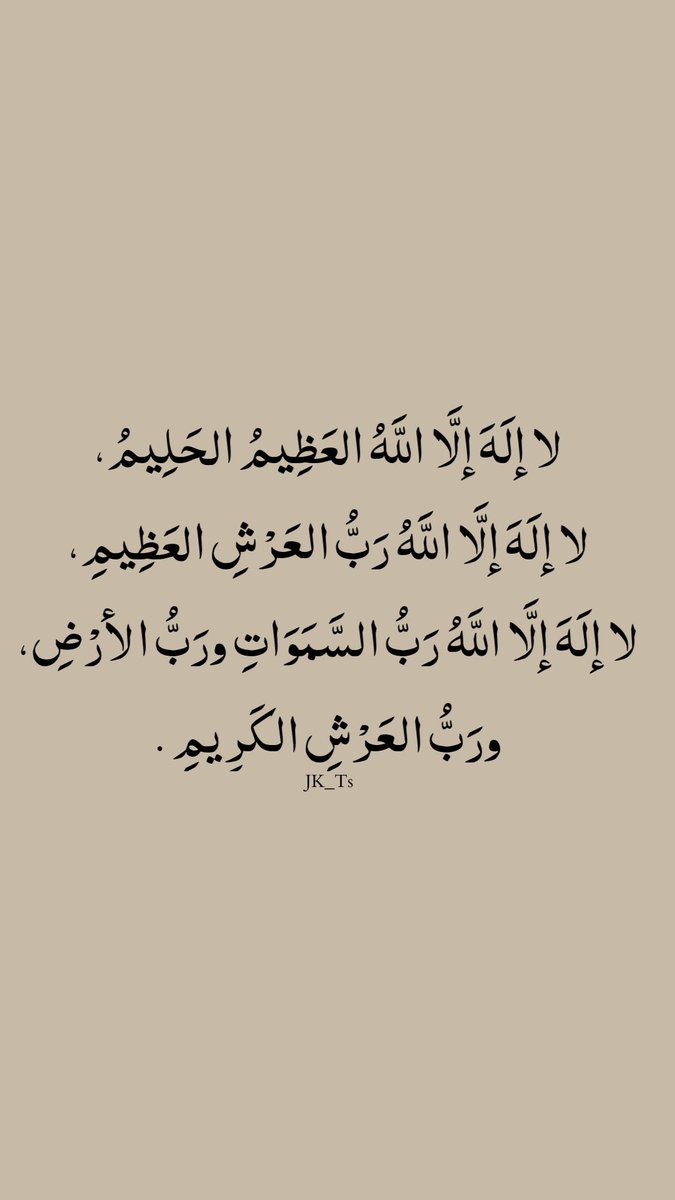 لا إِلَهَ إِلَّا اللَّهُ العَظِيمُ الحَلِيمُ،
لا إِلَهَ إِلَّا اللَّهُ رَبُّ العَرْشِ العَظِيمِ،
لا إِلَهَ إِلَّا اللَّهُ رَبُّ السَّمَوَاتِ ورَبُّ الأرْضِ،
ورَبُّ العَرْشِ الكَرِيمِ .
JK_Ts